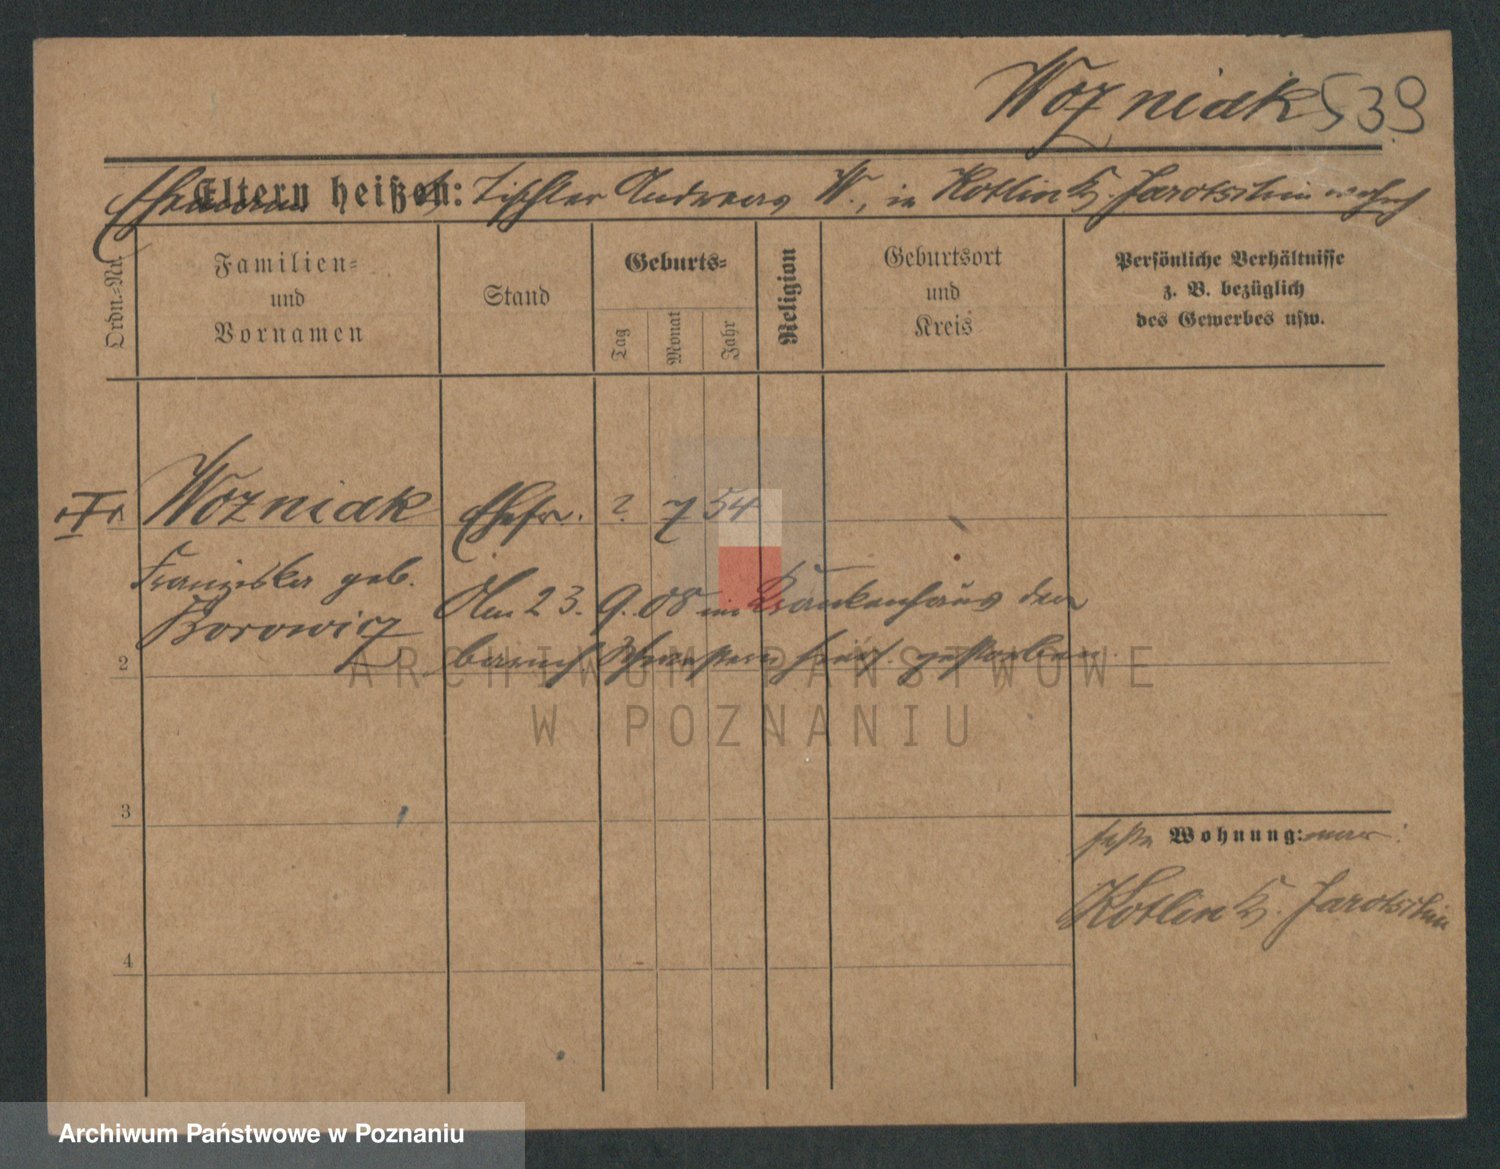 Wozniak 539
Eltern heißen:
Ehemann Tischler Andreas W., in Kotlin K. Jarotschin
Ordn.-Nr.
Familien-
und
Vornamen
Stand
Geburts-
Tag
Monat
Jahr
Religion
Geburtsort
und
Kreis
Persönliche Verhältnisse
z. B. bezüglich
des Gewerbes usw.
Wozniak Ehefr. ? 7 54
Franziska geb.
Borowicz
Am 23. 9. 08 im Krankenhaus der
barmh. Schwestern hier gestorben.
2
3
4
Wohnung: war:
Kotlin K. Jarotschin
ARCHIWUM PAŃSTWOWE
W POZNANIU
Archiwum Państwowe w Poznaniu